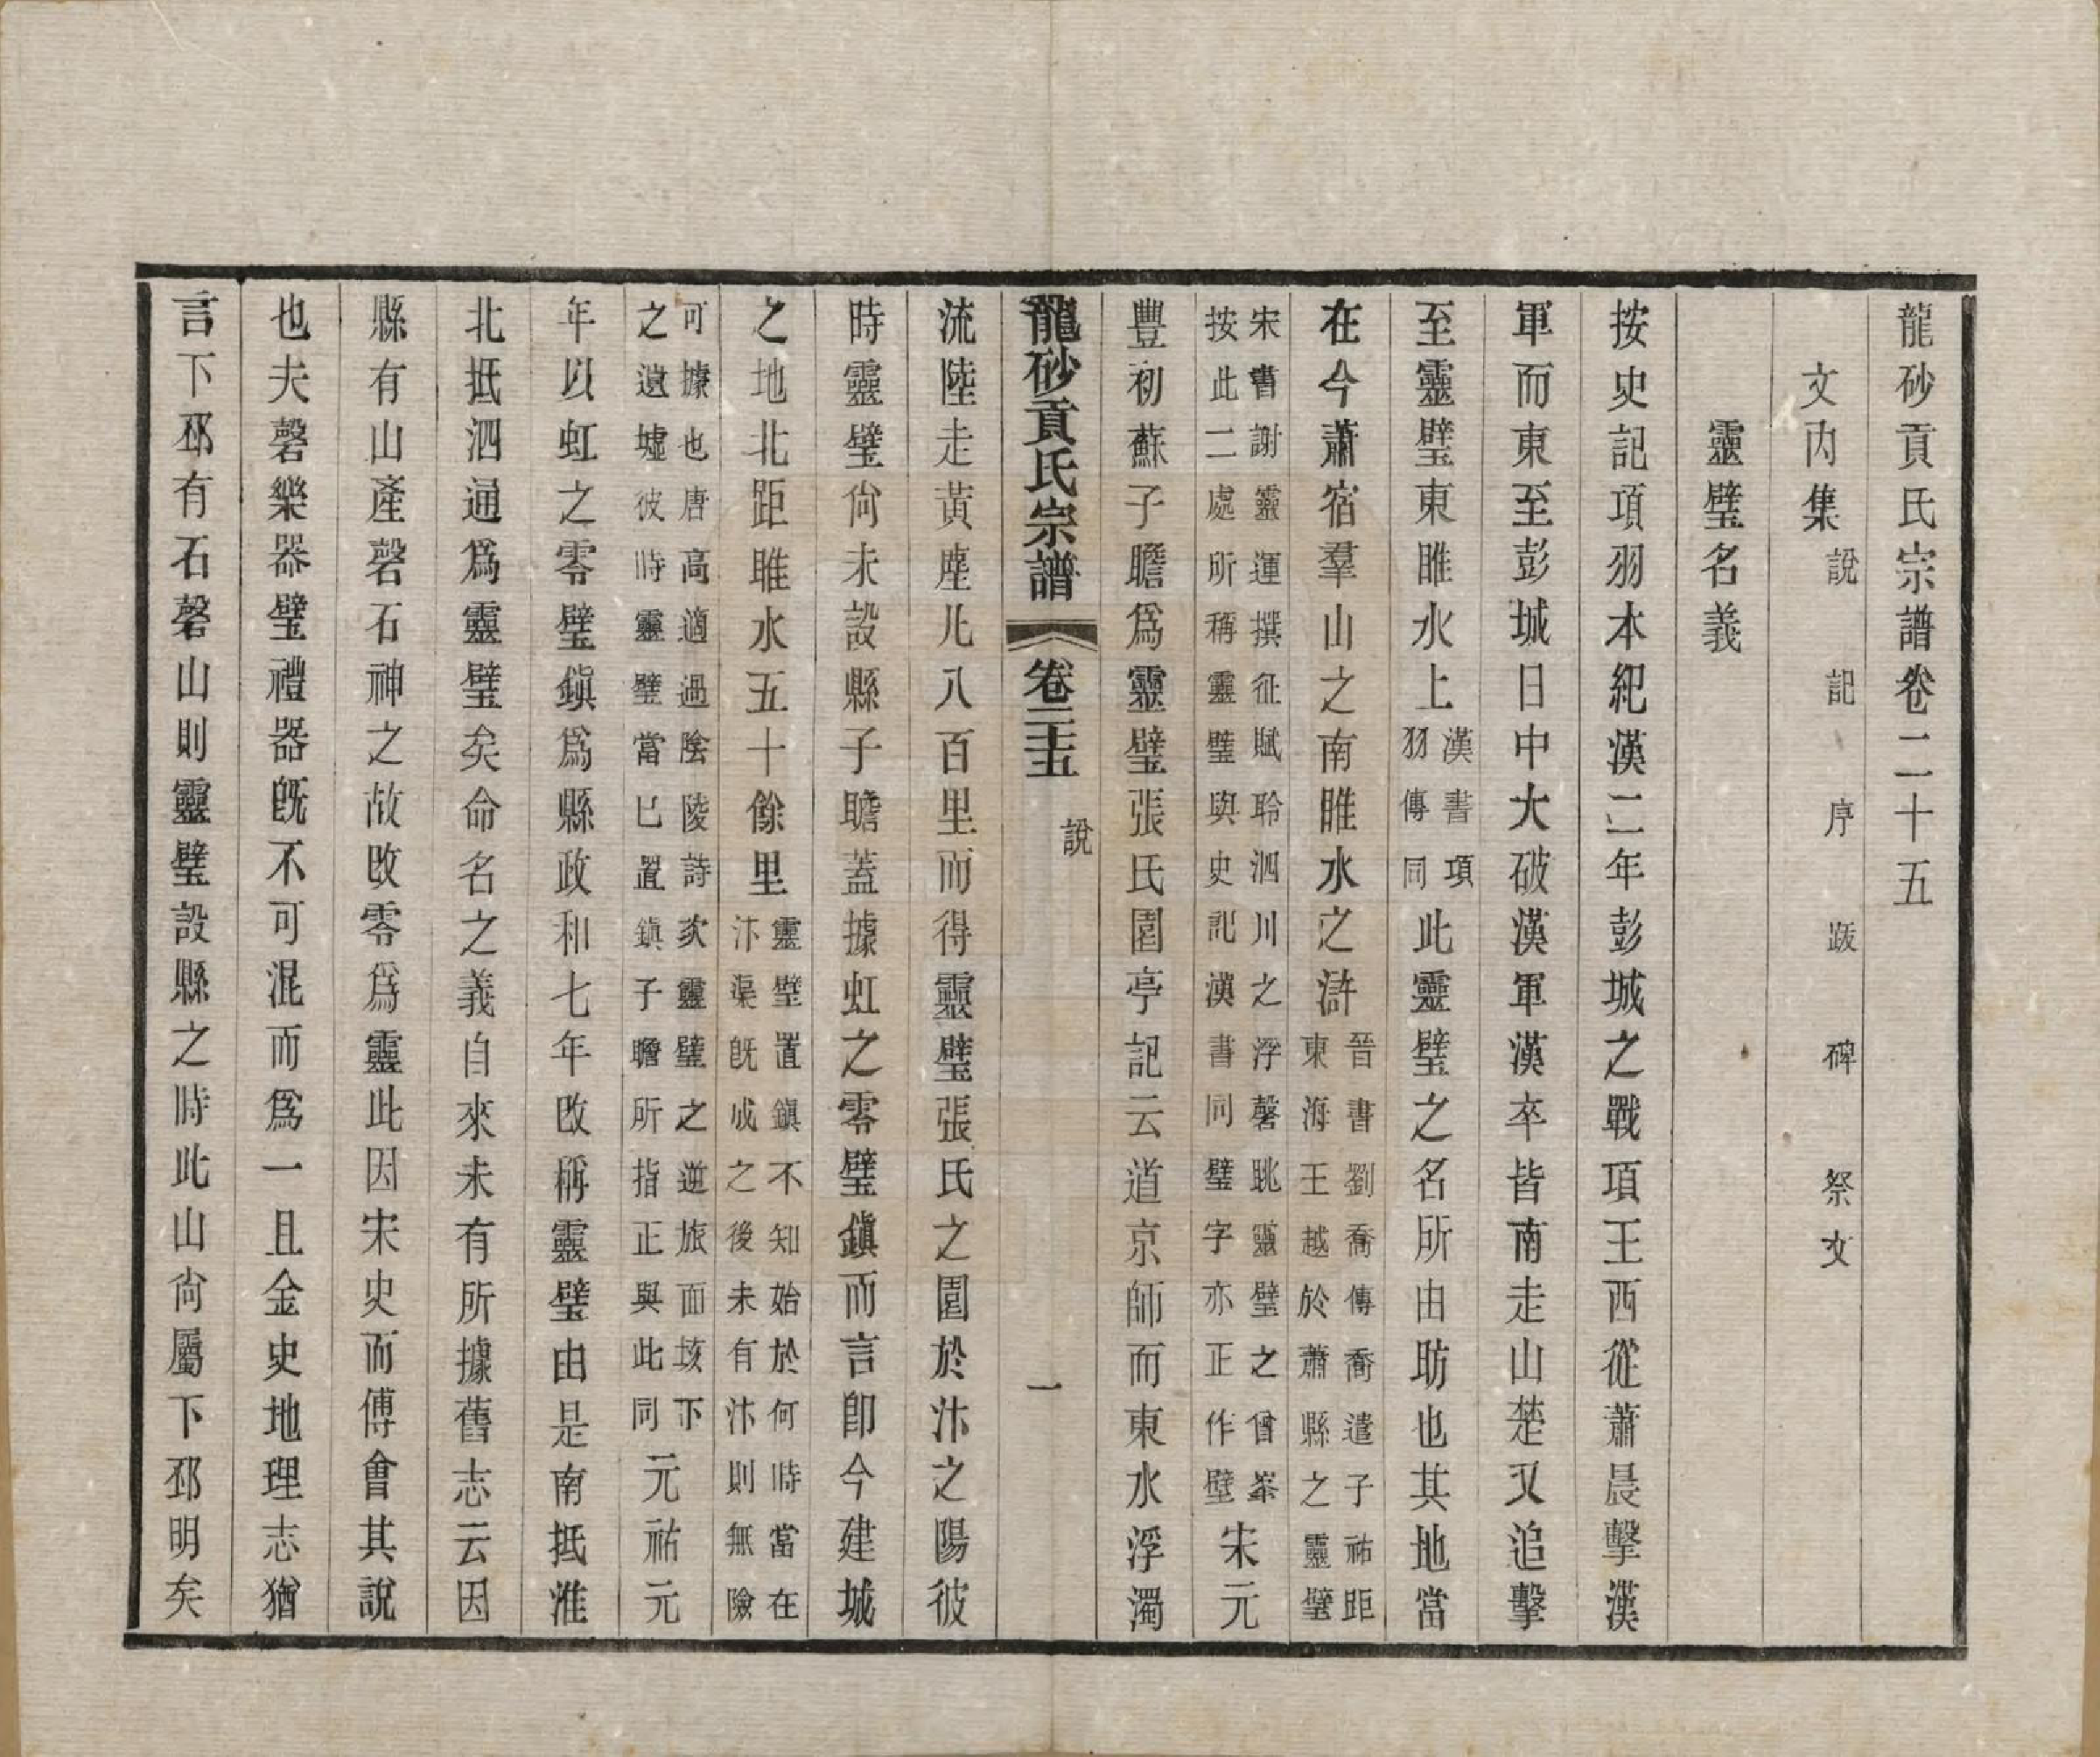 龍砂貢氏宗譜卷二十五
文內集 說 記 序 跋 碑 祭文
靈璧名義
按史記項羽本紀漢二年彭城之戰項王西從蕭晨擊漢
軍而東至彭城日中大破漢軍漢卒皆南走山楚又追擊
至靈璧東睢水上漢書項羽傳同此靈璧之名所由昉也其地當
在今蕭宿羣山之南睢水之滸晉書劉喬傳喬遣子祐距東海王越於蕭縣之靈璧
宋書謝靈運撰征賦聆泗川之浮磬眺靈璧之曾峯按此二處所稱靈璧與史記漢書同璧字亦正作壁宋元
豐初蘇子瞻爲靈璧張氏園亭記云道京師而東水浮濁
龍砂貢氏宗譜 卷二十五 說 一
流陸走黃塵凡八百里而得靈璧張氏之園於汴之陽彼
時靈璧尙未設縣子瞻蓋據虹之零璧鎭而言卽今建城
之地北距睢水五十餘里靈壁置鎭不知始於何時當在汴渠旣成之後未有汴則無險
可據也唐高適過陰陵詩次靈璧之逆旅面垓下之遺墟彼時靈璧當已置鎭子瞻所指正與此同元祐元
年以虹之零璧鎭爲縣政和七年改稱靈璧由是南抵淮
北抵泗通爲靈璧矣命名之義自來未有所據舊志云因
縣有山產磬石神之故改零爲靈此因宋史而傅會其說
也夫磬樂器璧禮器旣不可混而爲一且金史地理志猶
言下邳有石磬山則靈璧設縣之時此山尙屬下邳明矣